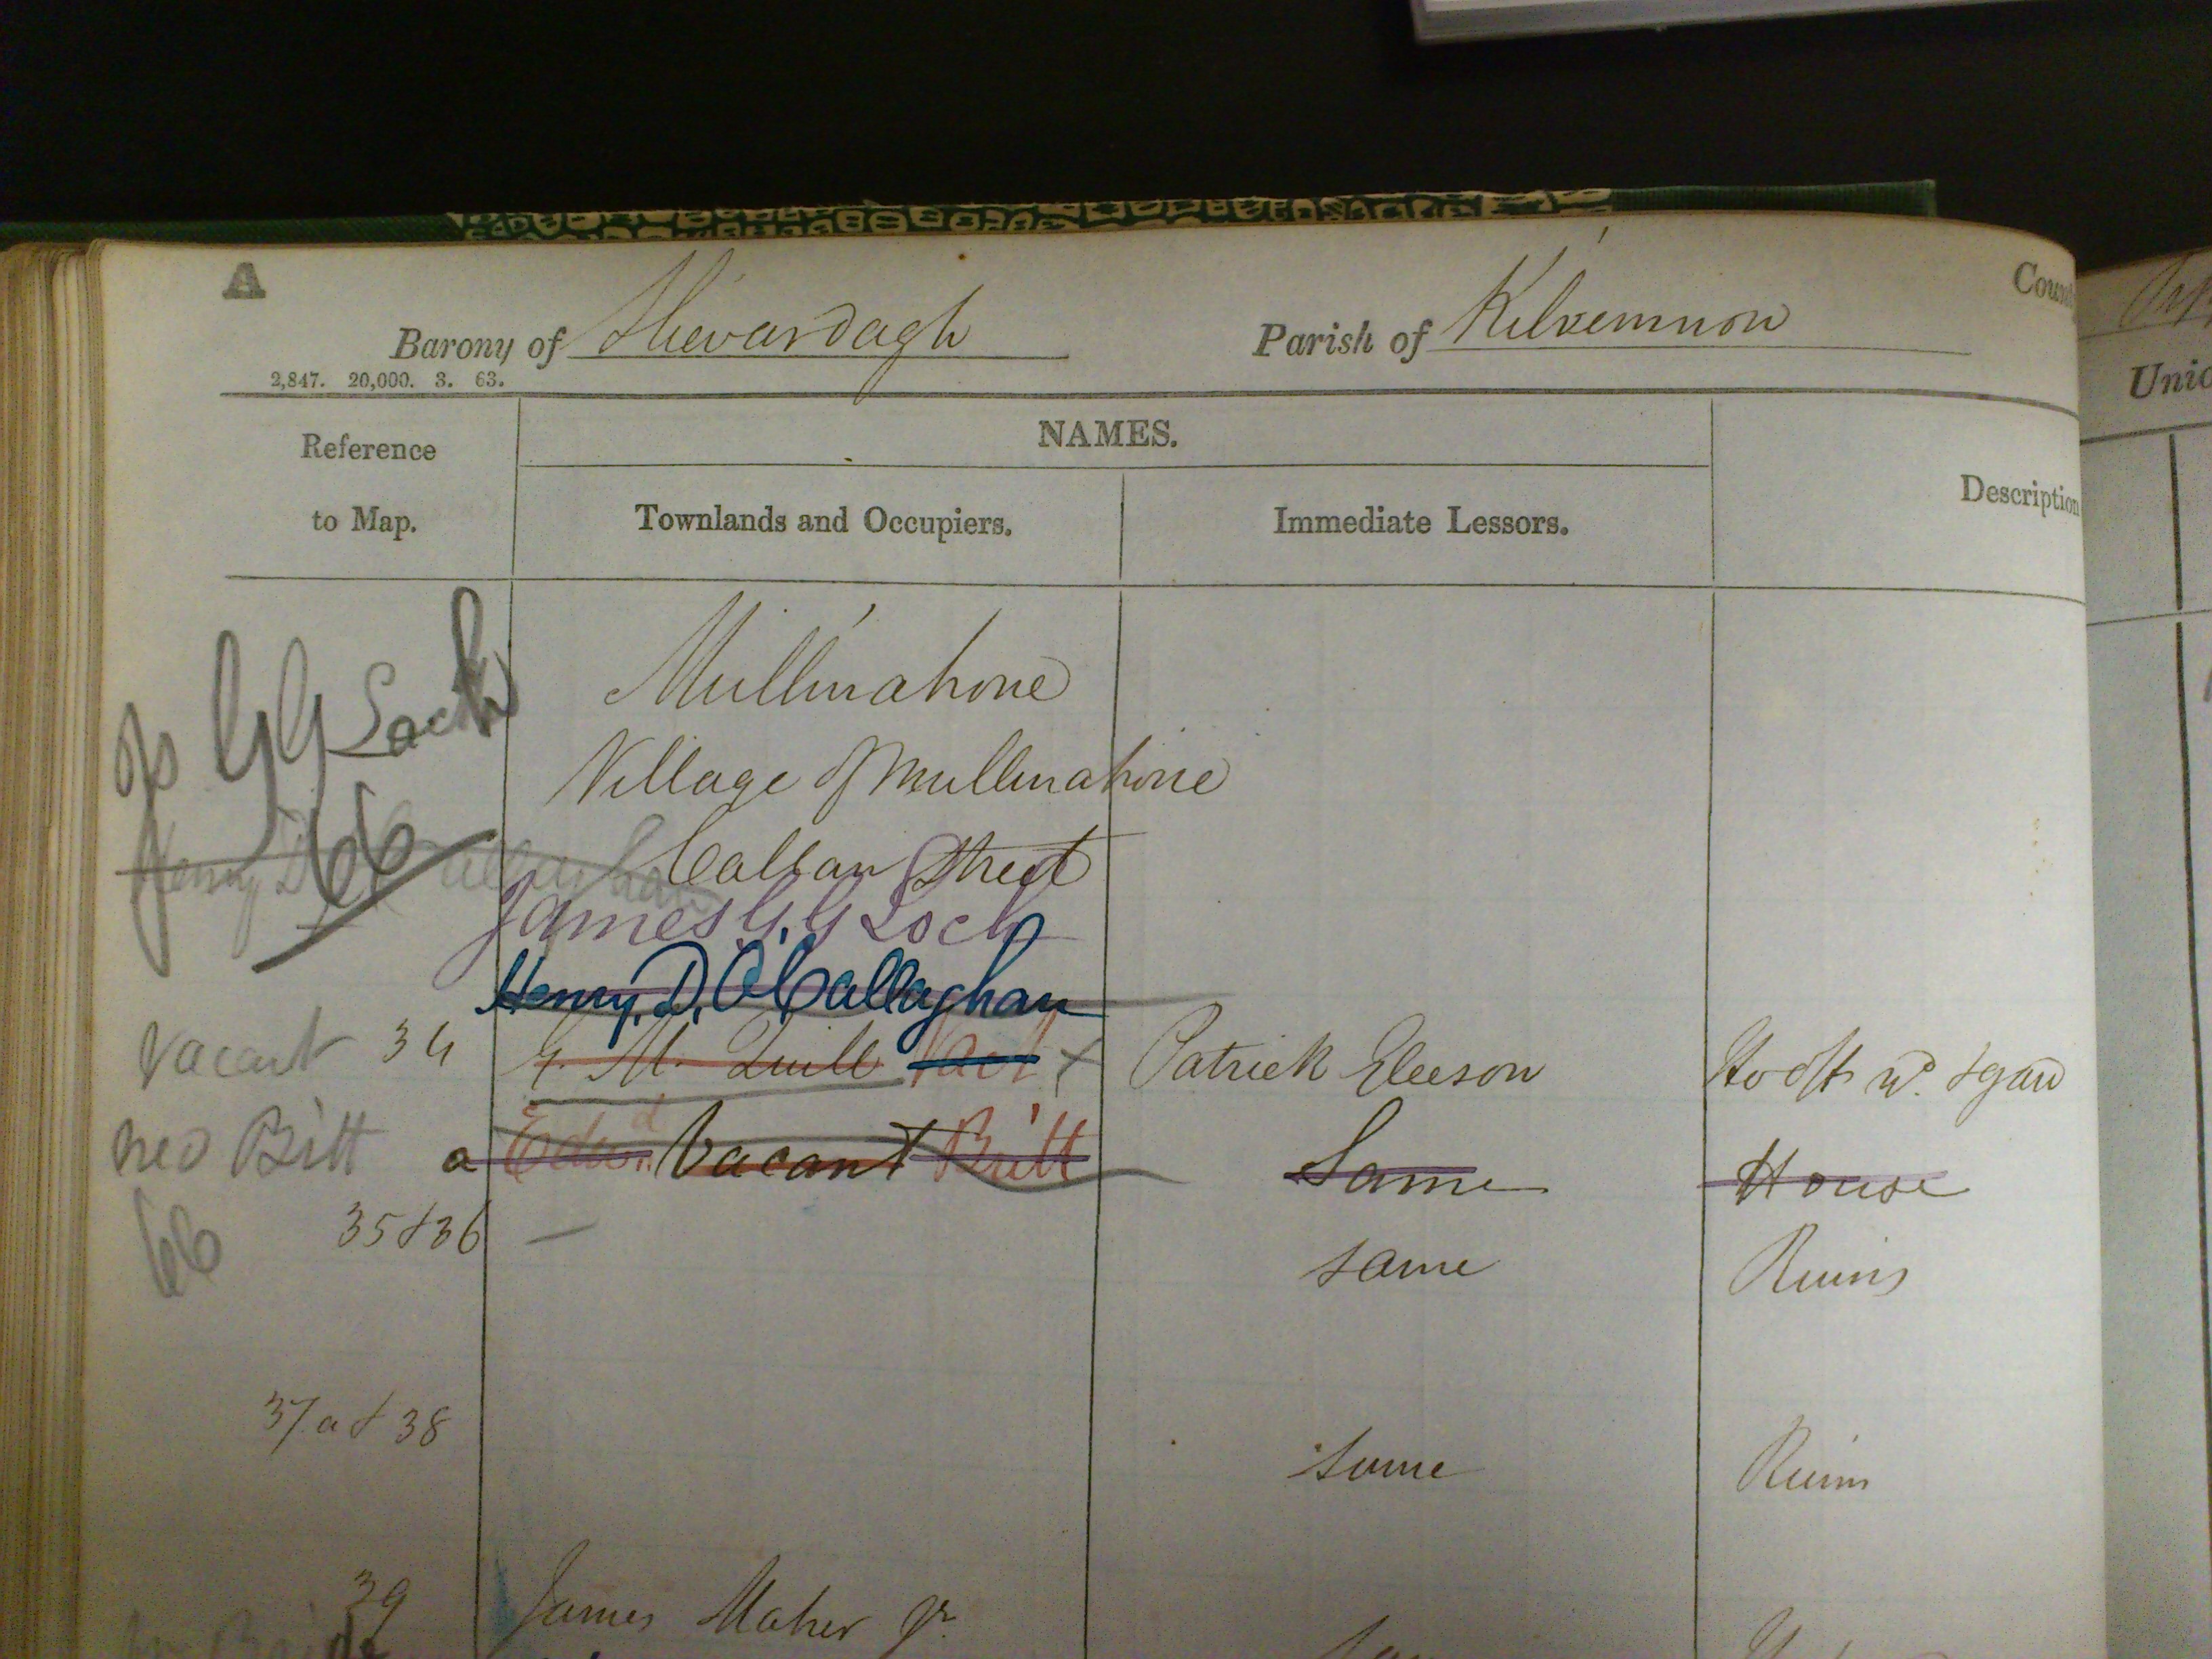 A
Coun
Barony of Slievardagh
Parish of Kilvemnon
2,847. 20,000. 3. 63.
Unio
Reference
to Map.
NAMES.
Townlands and Occupiers.
Immediate Lessors.
Description
Mullinahone
G G Loch
Village of Mullinahone
66
Callan Street
Henry D O'Callaghan
James G. G Loch
Henry. D. O'Callaghan
Vacant 34 G. M. Quill Vact x Patrick Gleeson Ho offs yd & gard
neo Britt a Edwd. Vacant Britt Same House
66
35 & 36 — same Ruins
37 a & 38 same Ruins
39 James Maher Jr.